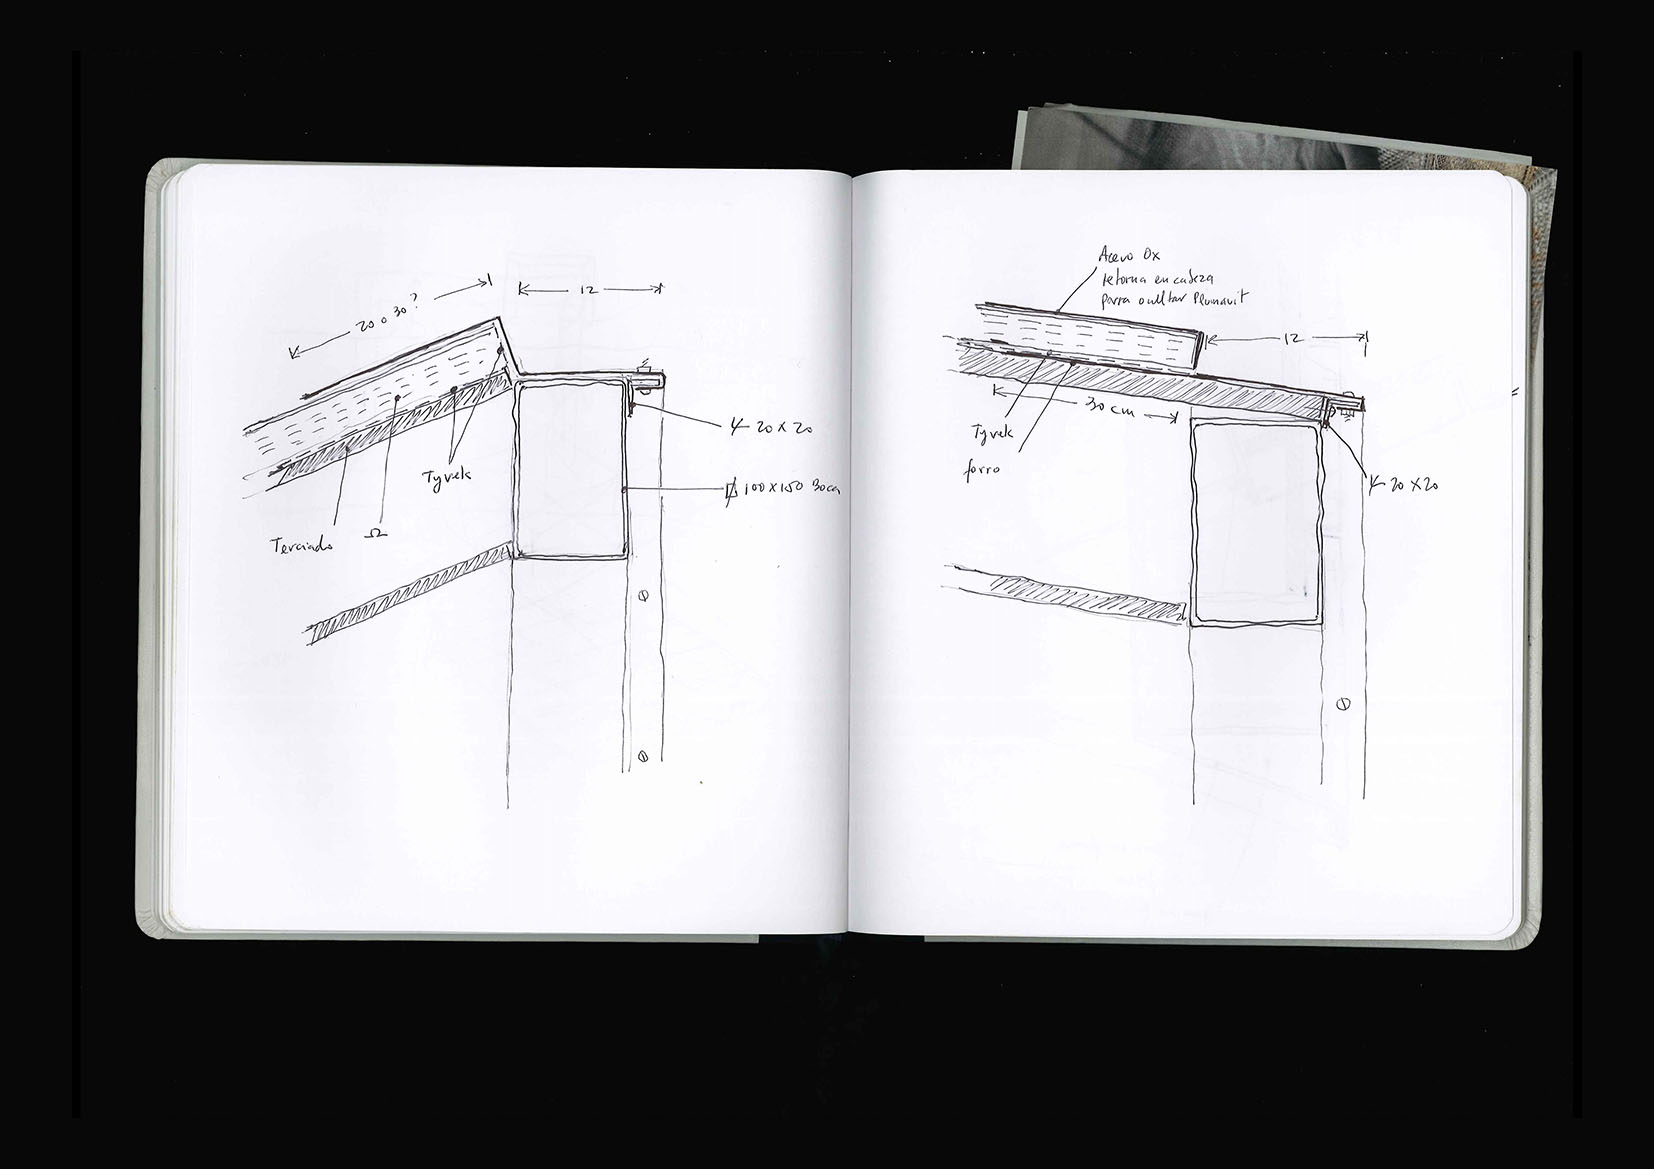 20 o 30?
12
20 x 20
100 x 150
Tyvek
Terciado
Ω
Acero Ox
retorna en cabeza
para ocultar Plumavit
12
30 cm
Tyvek
forro
20 x 20